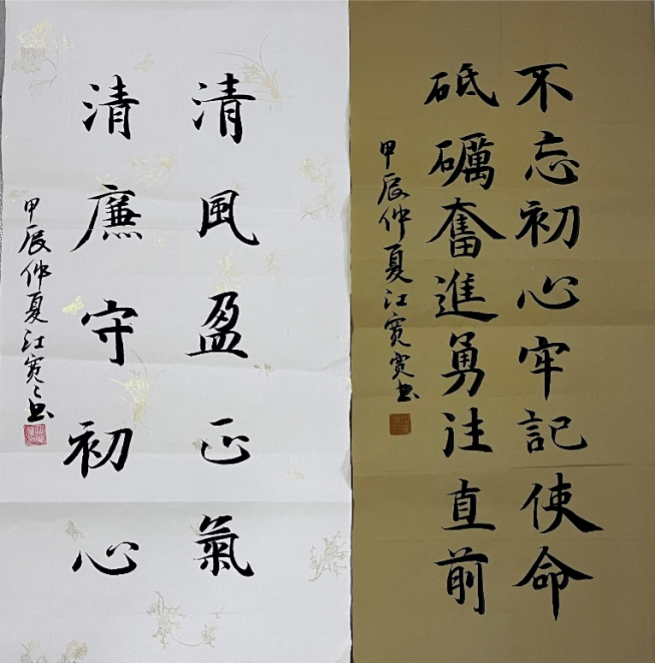 不忘初心牢記使命
砥礪奮進勇往直前
甲辰仲夏江書
清風盈正氣
清廉守初心
甲辰仲夏江書